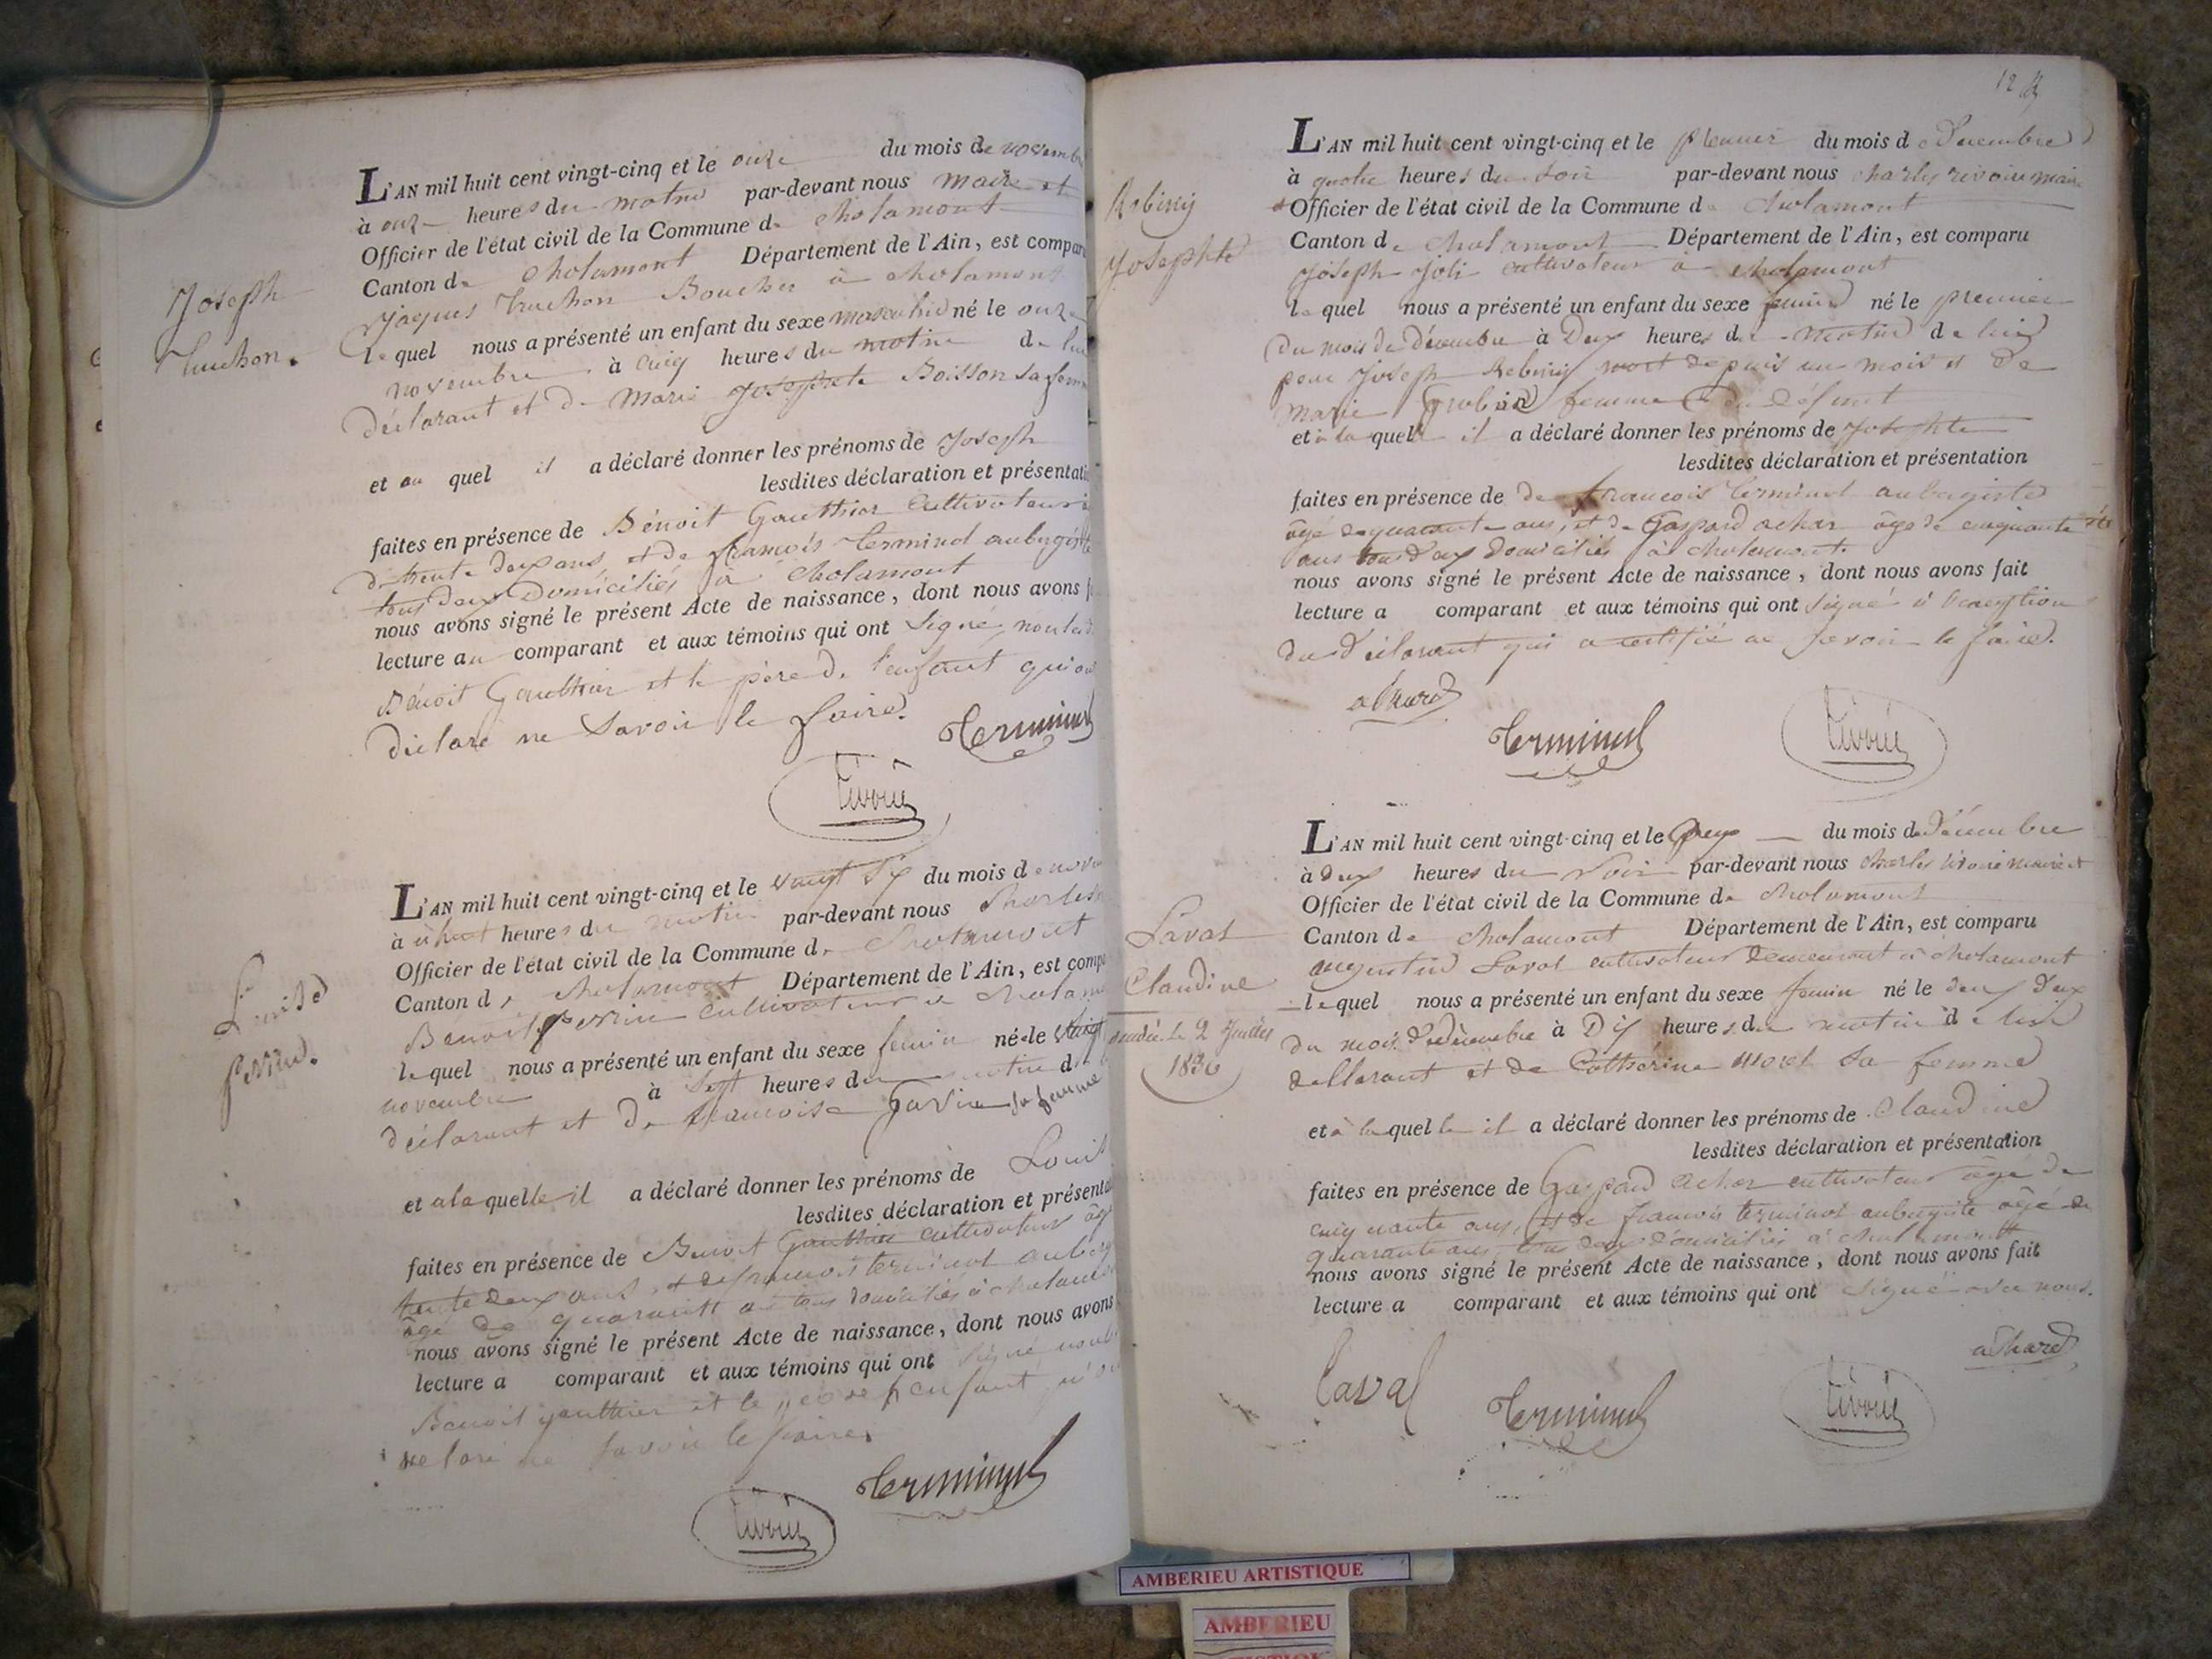 Joseph
Truchon.
L'AN mil huit cent vingt-cinq et le onze du mois de novembre
à onze heures du matin par-devant nous maire et
Officier de l'état civil de la Commune de Cholamont
Canton de Cholamont Département de l'Ain, est compar
Jaques Truchon Boucher à Cholamont
lequel nous a présenté un enfant du sexe masculin né le onze
novembre à cinq heures du matin de lui
déclarant et de Marie Josephte Boisson sa femme
et au quel il a déclaré donner les prénoms de Joseph
lesdites déclaration et présentati
faites en présence de Bénoit Gauthier cultivateur
de trente deux ans, et de françois Terminel aubergiste
tous deux domiciliés à Cholamont
nous avons signé le présent Acte de naissance, dont nous avons f
lecture au comparant et aux témoins qui ont signé, non led.
Bénoit Gauthier et le père de l'enfant qui on
déclaré ne savoir le faire.
Terminel
Rivoire
Louise
Perrin.
L'AN mil huit cent vingt-cinq et le vingt six du mois de nov
à huit heures du matin par-devant nous Charles
Officier de l'état civil de la Commune de Cholamont
Canton de Cholamont Département de l'Ain, est comp
Benoit Perrin cultivateur à Cholam
lequel nous a présenté un enfant du sexe feminin né le vingt
novembre à sept heures du matin d
déclarant et de francoise Gavin sa femme
et a la quelle il a déclaré donner les prénoms de Louis
lesdites déclaration et présenta
faites en présence de Benoit Gauthier cultivateur âg
trente deux ans, et de francois terminel auberg
âgé de quarante ans tous domiciliés à cholamo
nous avons signé le présent Acte de naissance, dont nous avons
lecture a comparant et aux témoins qui ont signé
Benoit gauthier et le enfant
ne savoir le faire.
Terminel
Rivoire
12
Rebiny
Josephte
L'AN mil huit cent vingt-cinq et le premier du mois de Décembre
à quatre heures du soir par-devant nous charles rivoire maire
Officier de l'état civil de la Commune de Cholamont
Canton de Cholamont Département de l'Ain, est comparu
Joseph Joli cultivateur à Cholamont
lequel nous a présenté un enfant du sexe feminin né le premier
du mois de décembre à Deux heures du matin de lui
pour Joseph Rebiny mort depuis un mois et de
marie femme du défunt
et à la quelle il a déclaré donner les prénoms de Josephte
lesdites déclaration et présentation
faites en présence de de francois Terminel aubergiste
âgé de quarante ans, et de Gaspard achar âgé de cinquante
ans tous deux domiciliés à cholamont.
nous avons signé le présent Acte de naissance, dont nous avons fait
lecture a comparant et aux témoins qui ont signé à l'exception
du déclarant qui a certifié ne savoir le faire.
achard
Terminel
Rivoire
Laval
Claudine
le 2
1836
L'AN mil huit cent vingt-cinq et le deux du mois de Décembre
à deux heures du soir par-devant nous Charles rivoire maire et
Officier de l'état civil de la Commune de Cholamont
Canton de Cholamont Département de l'Ain, est comparu
augustin Laval cultivateur demeurant à cholamont
lequel nous a présenté un enfant du sexe feminin né le deux
du mois de décembre à Dix heures du matin de lui
dellarant et de Catherine Morel sa femme
et à la quelle il a déclaré donner les prénoms de Claudine
lesdites déclaration et présentation
faites en présence de Gaspard achar cultivateur âgé de
cinquante ans, et de francois terminel aubergiste âgé de
quarante ans, tous deux domiciliés à cholamont
nous avons signé le présent Acte de naissance, dont nous avons fait
lecture a comparant et aux témoins qui ont signé avec nous.
achard
Laval
Terminel
Rivoire
AMBERIEU ARTISTIQUE
AMBERIEU